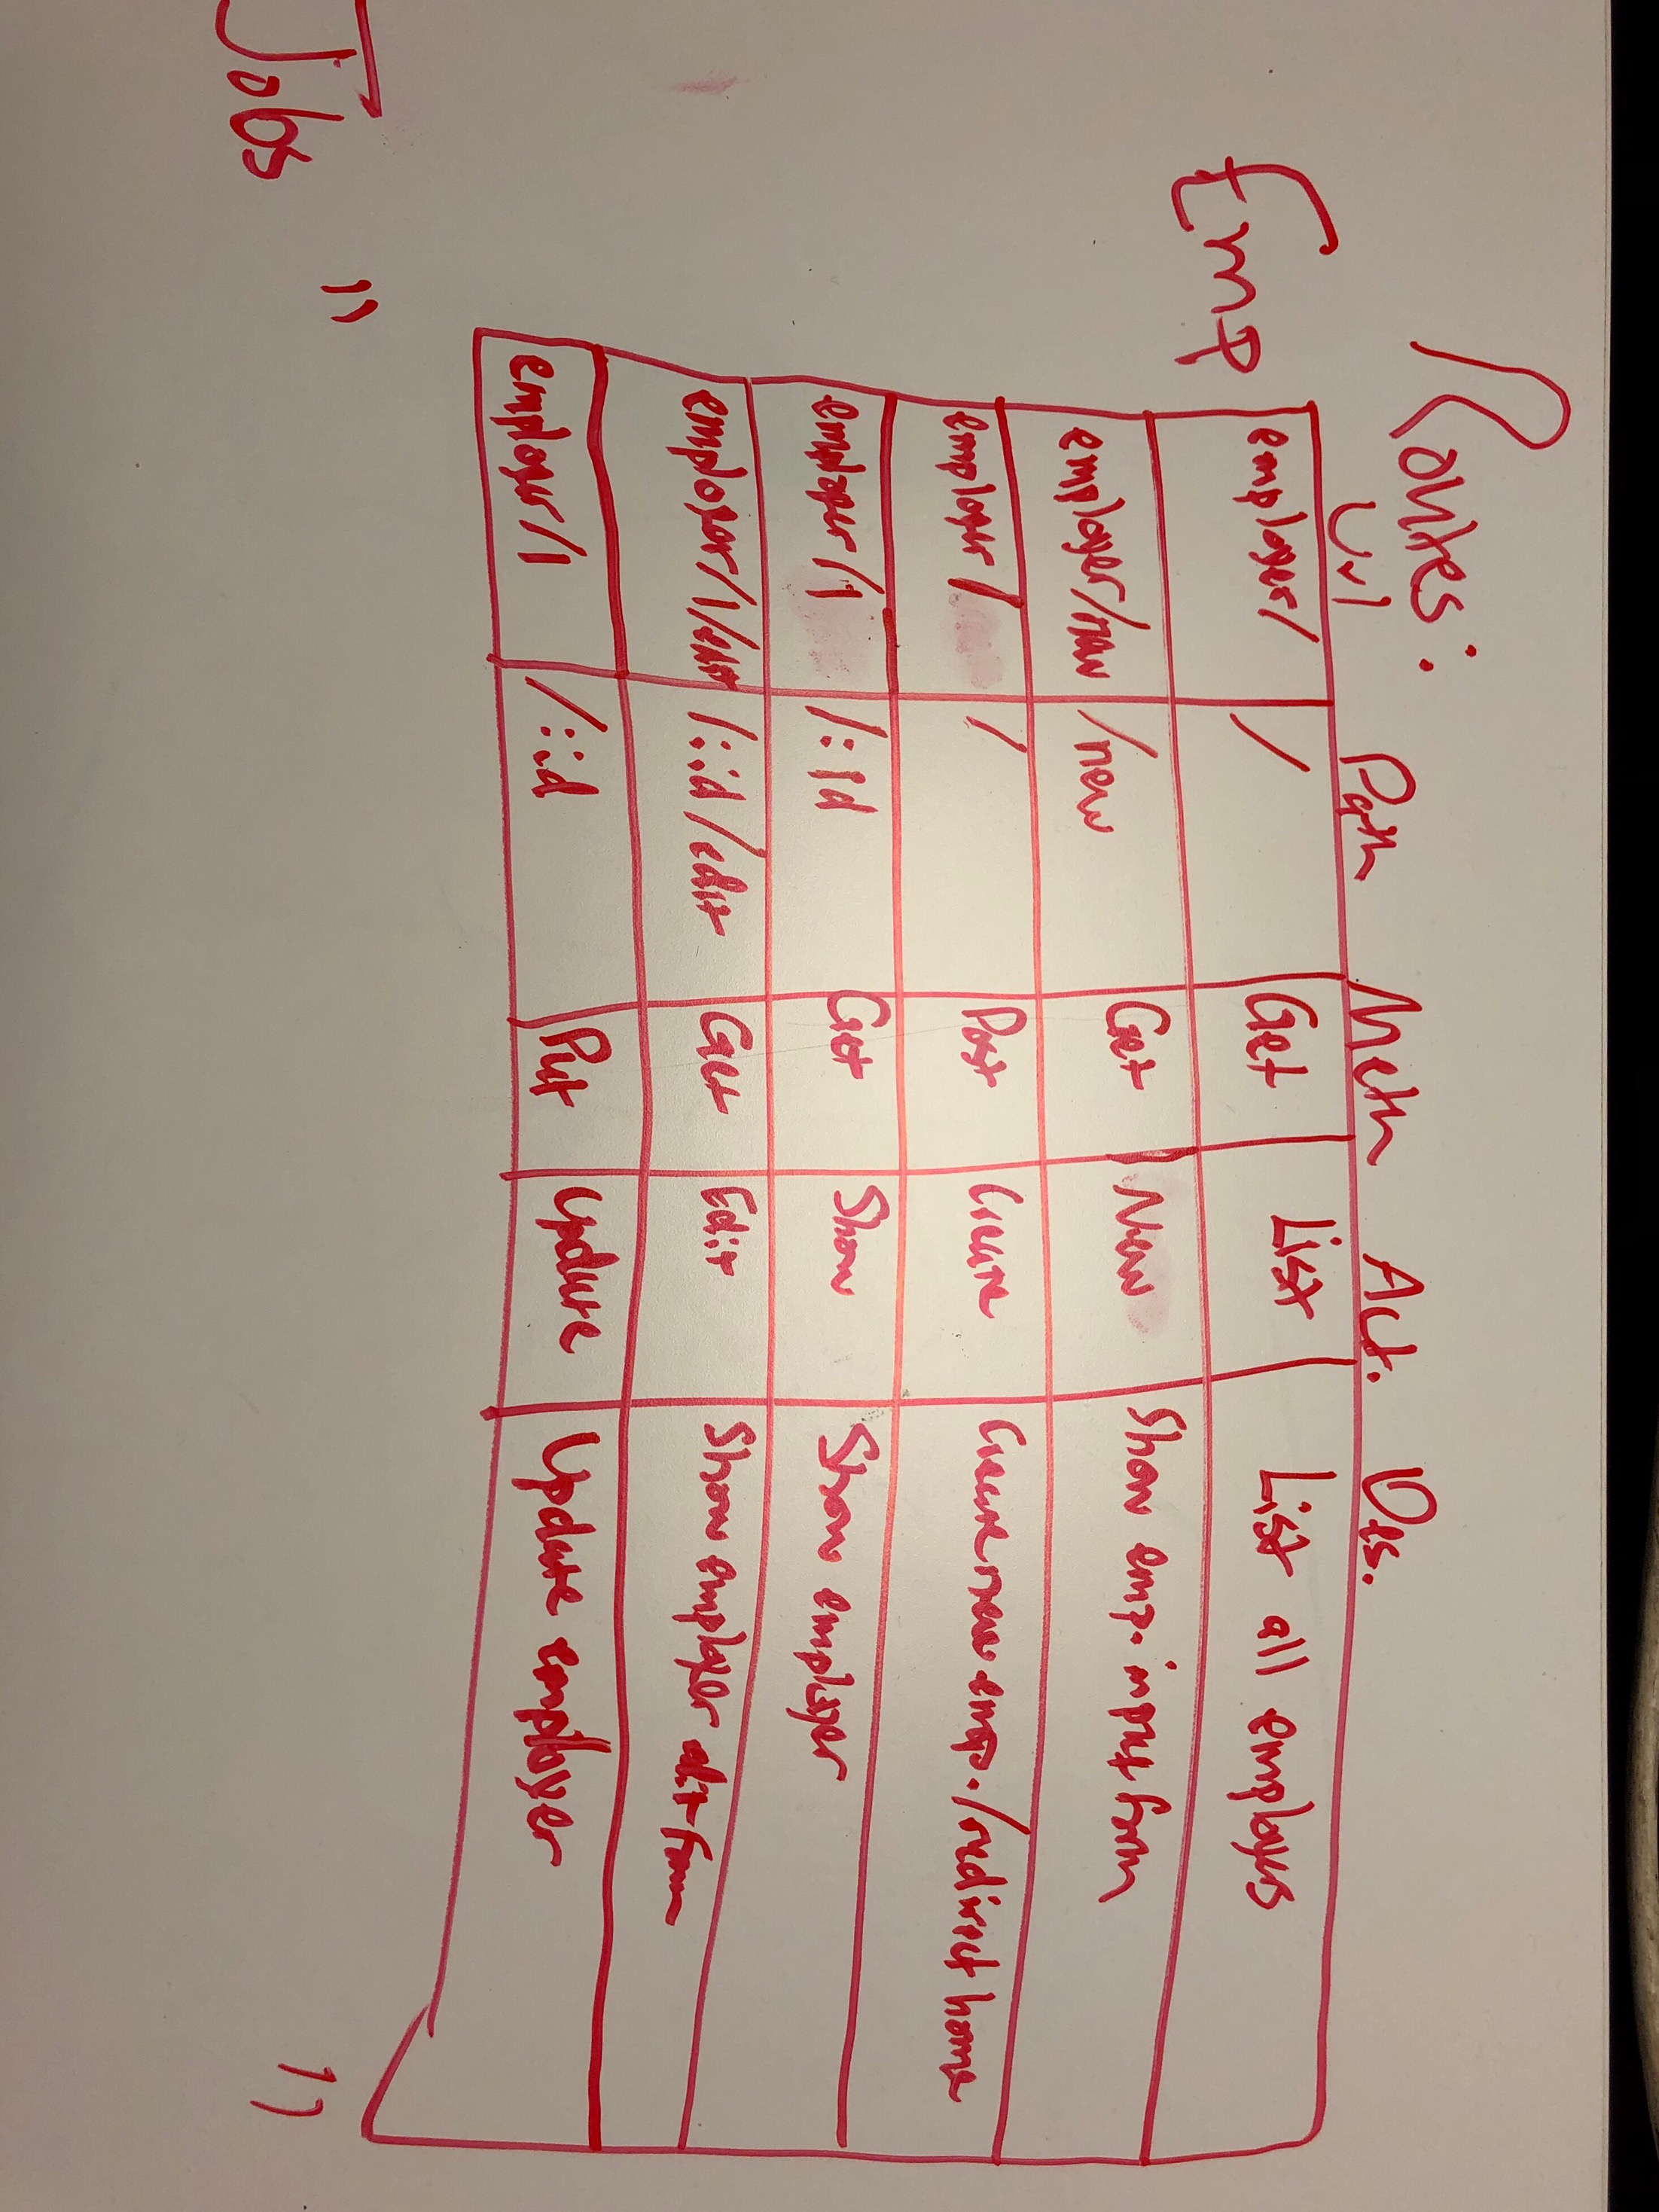 Routes:
Url Path Meth Act. Des.
Emp
employer/ / Get List List all employers
employer/new /new Get New Show emp. input form
employer/ / Post Create Create new emp./redirect home
employer/1 /:id Get Show Show employer
employer/1/edit /:id/edit Get Edit Show employer edit form
employer/1 /:id Put Update Update employer
Jobs " "